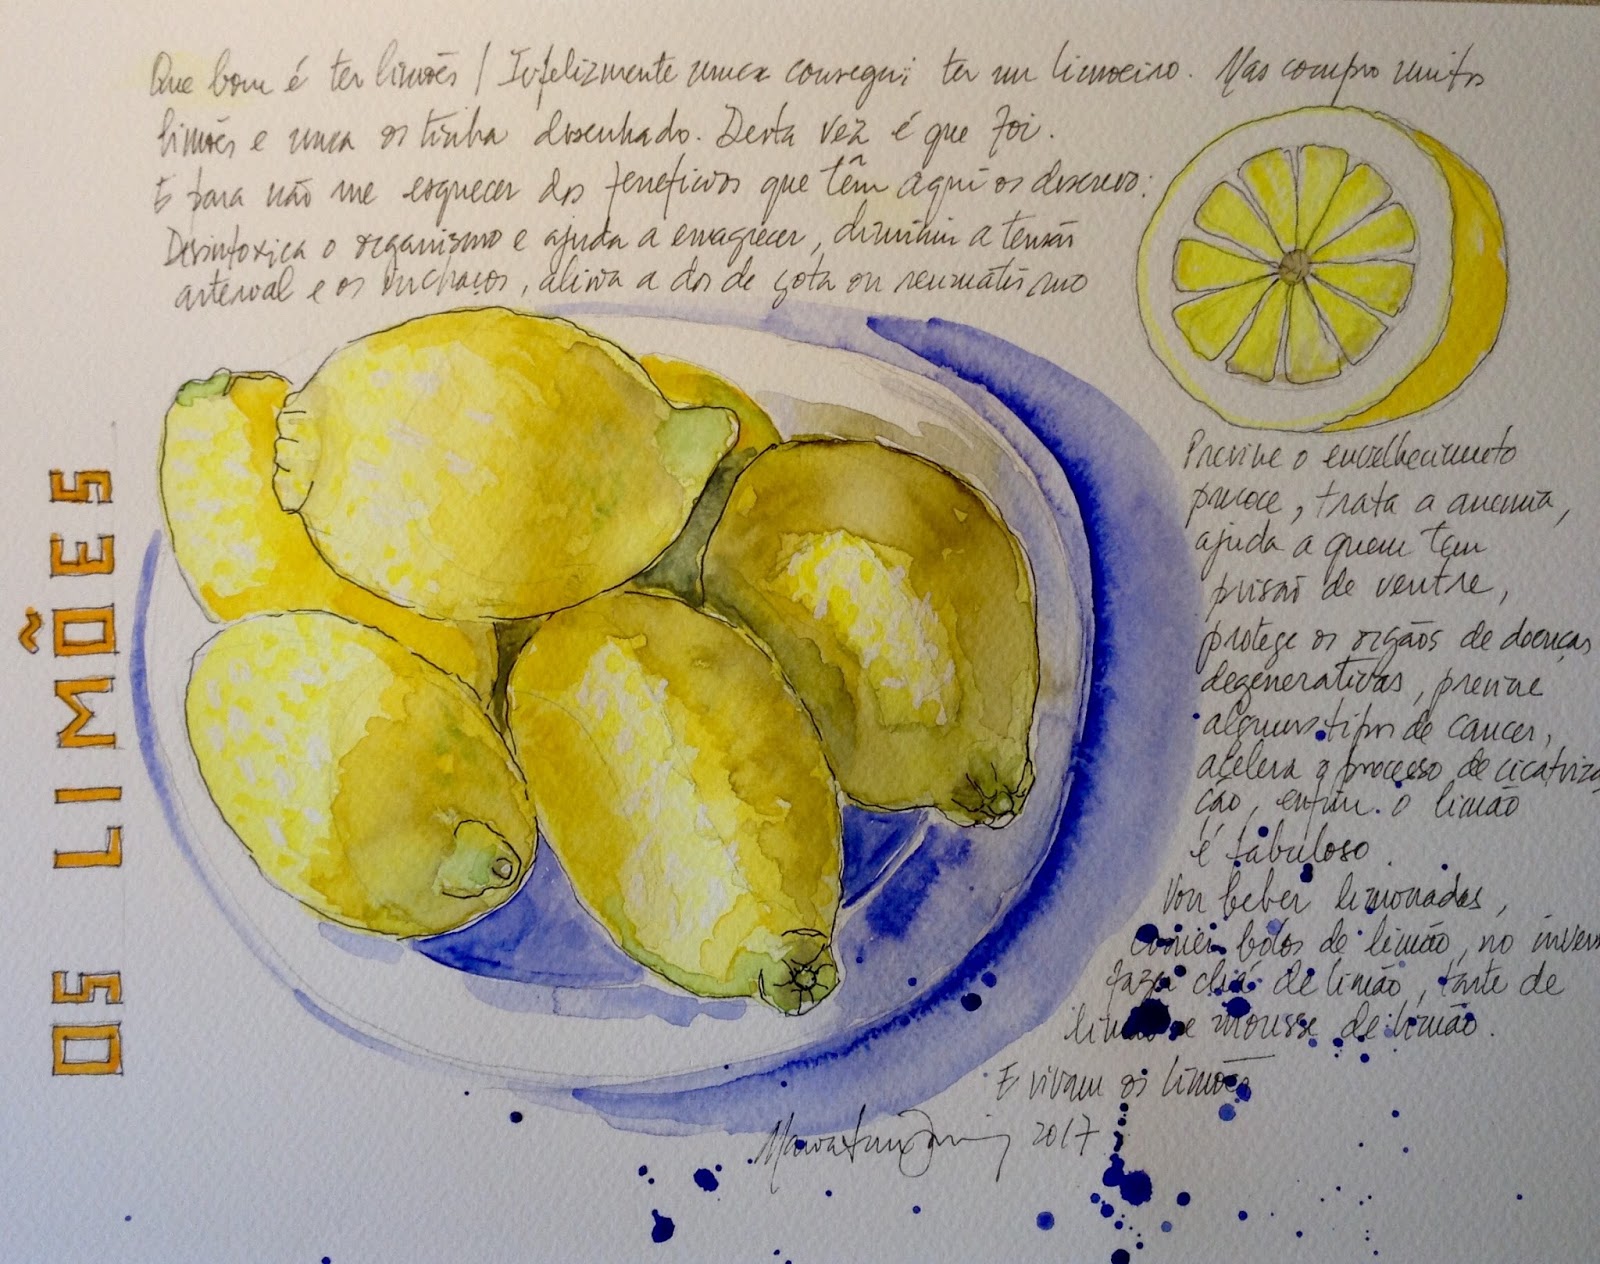 Que bom é ter limões! Infelizmente nunca consegui ter um limoeiro. Mas compro muitos
limões e nunca os tinha desenhado. Desta vez é que foi.
E para não me esquecer dos beneficios que têm aqui os descrevo:
Desintoxica o organismo e ajuda a emagrecer, diminui a tensão
arterial e os inchaços, alivia a dor de gota ou reumatismo
Previne o envelhecimento
precoce, trata a anemia,
ajuda a quem tem
prisão de ventre,
protege os orgãos de doenças
degenerativas, previne
alguns tipos de cancer,
acelera o processo de cicatriza
ção, enfim. o limão
é fabuloso.
Vou beber limonadas,
comer bolos de limão, no invern
fazer chá de limão, tarte de
limão e mousse de limão.
E vivam os limões
2017
OS LIMÕES